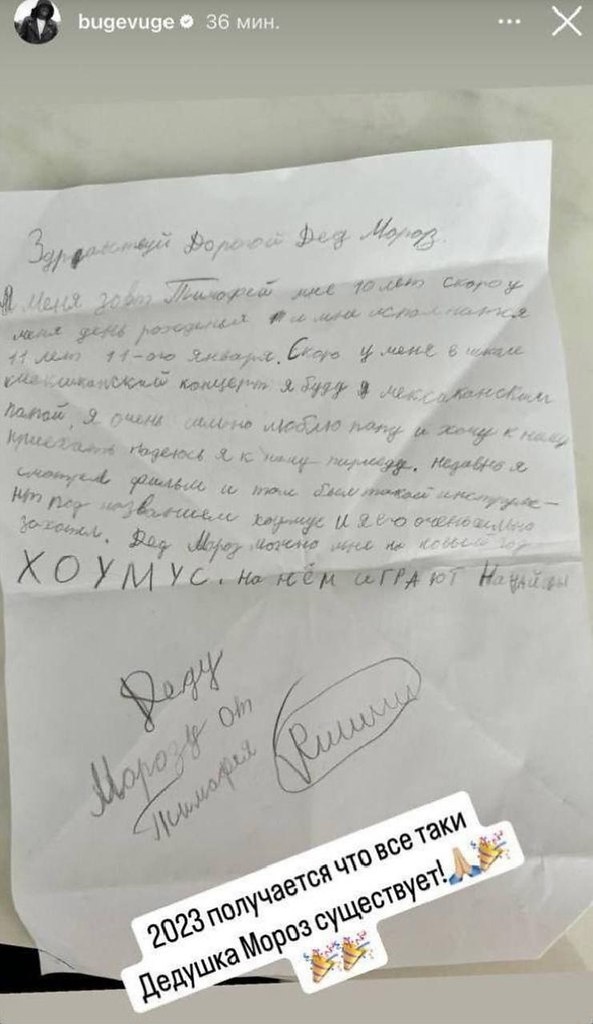 bugevuge 36 мин.
Здравствуй Дорогой Дед Мороз.
Меня зовут Тимофей мне 10 лет скоро у
меня день рождения и мне исполнится
11 лет 11-ого Января. Скоро у меня в школе
мексиканский концерт я буду мексаканским
папой, я очень сильно люблю папу и хочу к нему
приехать надеюсь я к нему приеду. Недавно я
смотрел фильм и там был такой инструме-
нт под названием хоумус и я его очень сильно
захотел. Дед Мороз можно мне на новый год
ХОУМУС. на нём ИГРАЮТ
Деду
Морозу от
Тимофея
2023 получается что все таки
Дедушка Мороз существует!🙏🏼🎉
🎉🎉